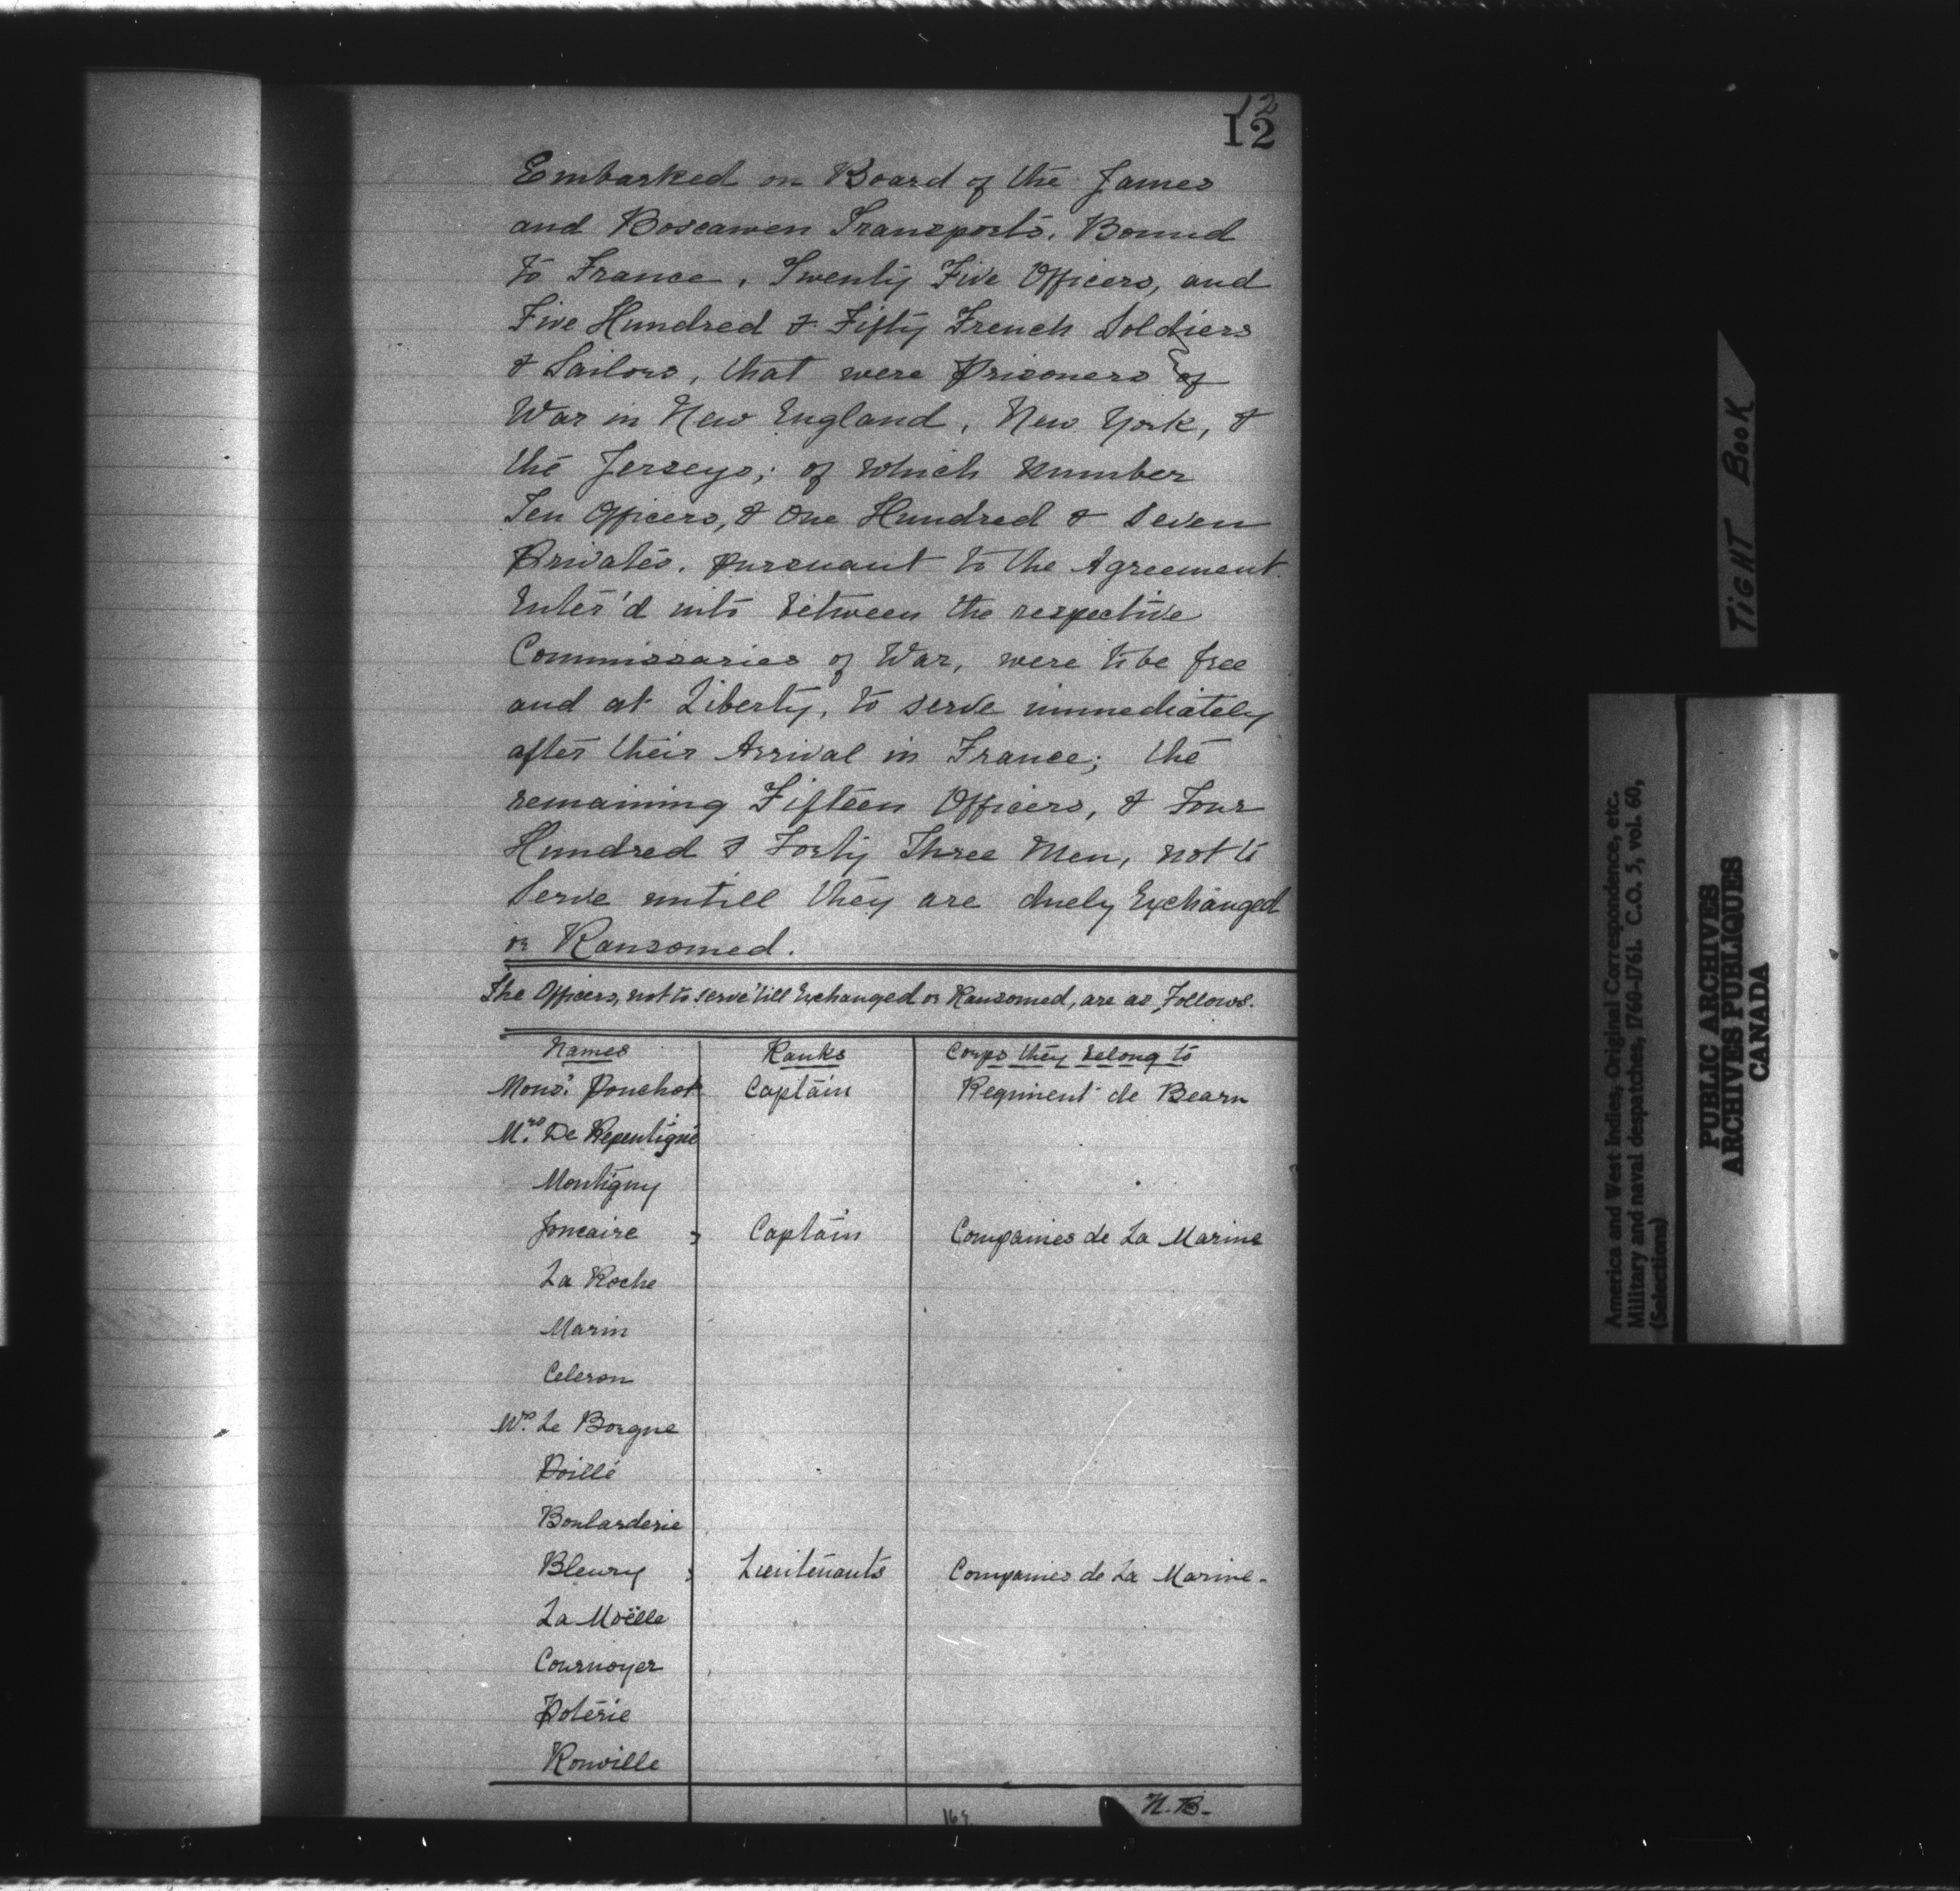 12
12
Embarked on Board of the James
and Boscawen Transports, Bound
to France, Twenty Five Officers, and
Five Hundred & Fifty French Soldiers
& Sailors, that were Prisoners of
War in New England, New York, &
the Jerseys; of which number
Ten Officers, & One Hundred & Seven
Privates, pursuant to the Agreement
Enter'd into between the respective
Commissaries of War, were to be free
and at Liberty, to serve immediately
after their Arrival in France; the
remaining Fifteen Officers, & Four
Hundred & Forty Three Men, not to
Serve untill they are duely Exchanged
or Ransomed.
The Officers, not to serve 'till Exchanged or Ransomed, are as Follows.
Names Ranks Corps they belong to
Monsr. Pouchot Captain Regiment de Bearn
Mrs. De Repentigni
Montigny
Joncaire Captain Companies de La Marine
La Roche
Marin
Celeron
Mrs. Le Borgne
Poillé
Boularderie
Bleury Lieutenants Companies de La Marine-
La Moëlle
Cournoyer
Poterie
Rouville
N.B-
TIGHT BOOK
America and West Indies, Original Correspondence, etc.
Military and naval despatches, 1760-1761. C.O. 5, vol. 60,
(Selections)
PUBLIC ARCHIVES
ARCHIVES PUBLIQUES
CANADA